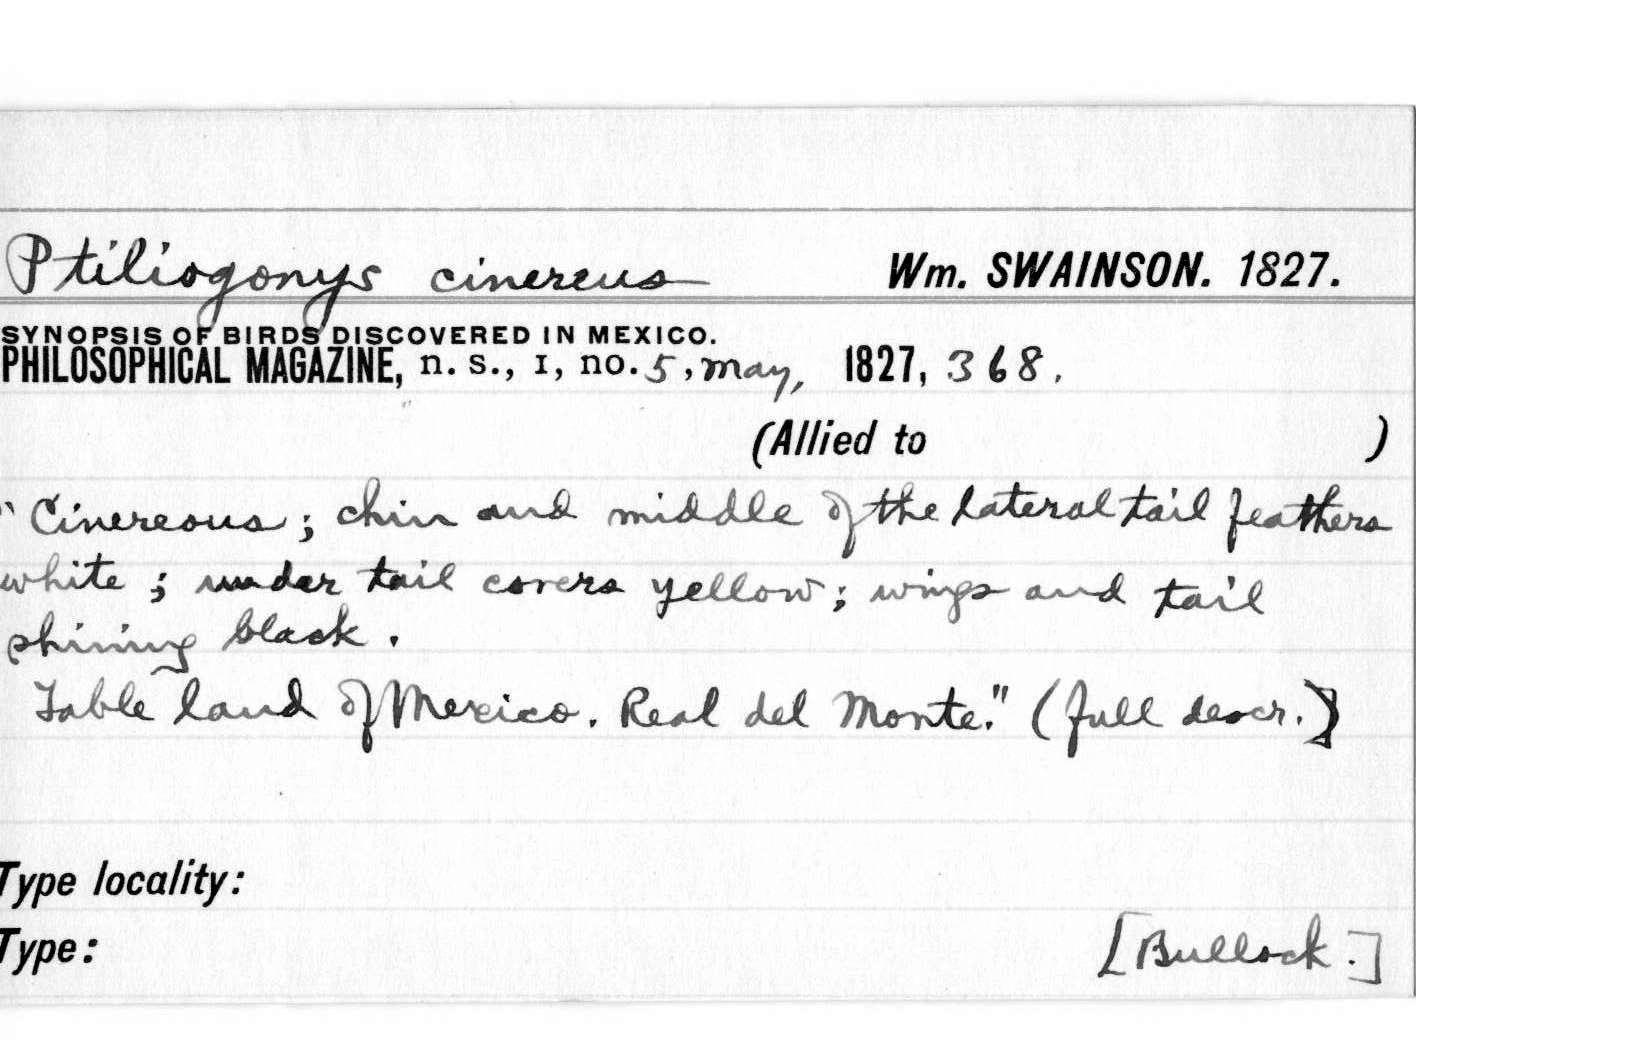 Ptiliogonys cinereus Wm. SWAINSON. 1827.
SYNOPSIS OF BIRDS DISCOVERED IN MEXICO.
PHILOSOPHICAL MAGAZINE, n. s., I, no. 5, May, 1827, 368.
(Allied to )
"Cinereous; chin and middle of the lateral tail feathers
white; under tail covers yellow; wings and tail
shining black.
Table land of Mexico. Real del Monte." (full descr.)]
Type locality:
Type: [Bullock.]